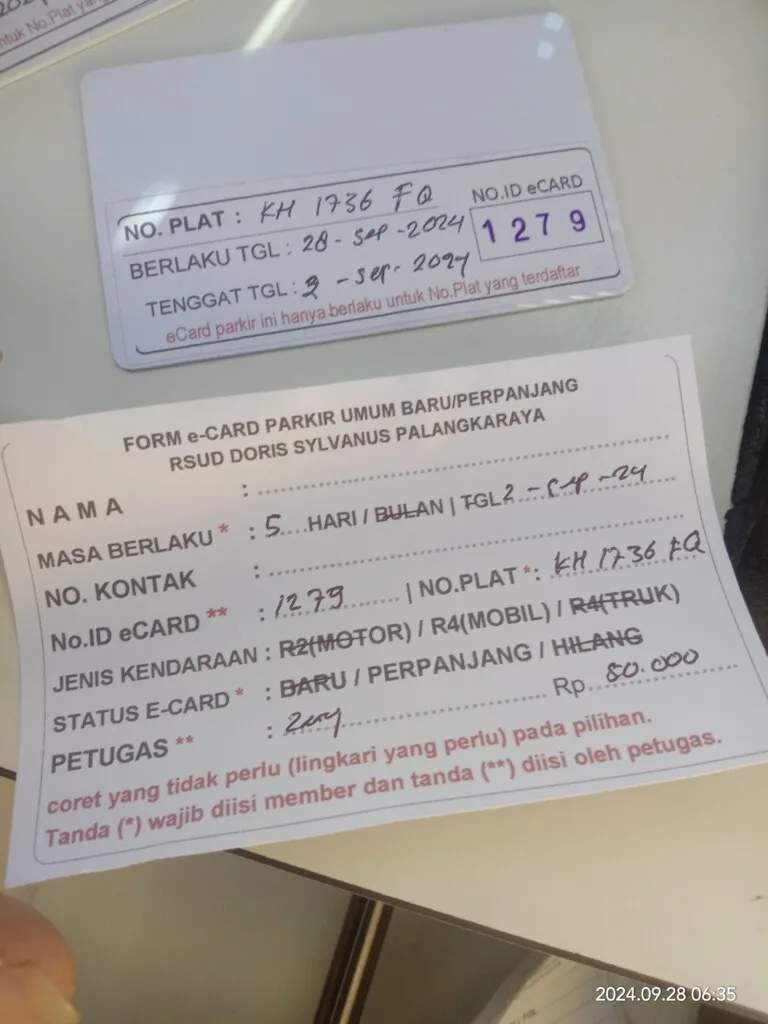 untuk No.Plat yang
NO. PLAT : KH 1736 FQ
NO.ID eCARD
1279
BERLAKU TGL : 28 - Sep - 2024
TENGGAT TGL : 2 - Sep - 2024
eCard parkir ini hanya berlaku untuk No.Plat yang terdaftar
FORM e-CARD PARKIR UMUM BARU/PERPANJANG
RSUD DORIS SYLVANUS PALANGKARAYA
NAMA : ....................
MASA BERLAKU * : 5.... HARI / BULAN | TGL 2 - Sep - 24
NO. KONTAK : ....................
No.ID eCARD ** : 1279 ........ | NO.PLAT *: KH 1736 FQ
JENIS KENDARAAN : R2(MOTOR) / R4(MOBIL) / R4(TRUK)
STATUS E-CARD * : BARU / PERPANJANG / HILANG
PETUGAS ** : .................... Rp. 80.000
coret yang tidak perlu (lingkari yang perlu) pada pilihan.
Tanda (*) wajib diisi member dan tanda (**) diisi oleh petugas.
2024.09.28 06:35